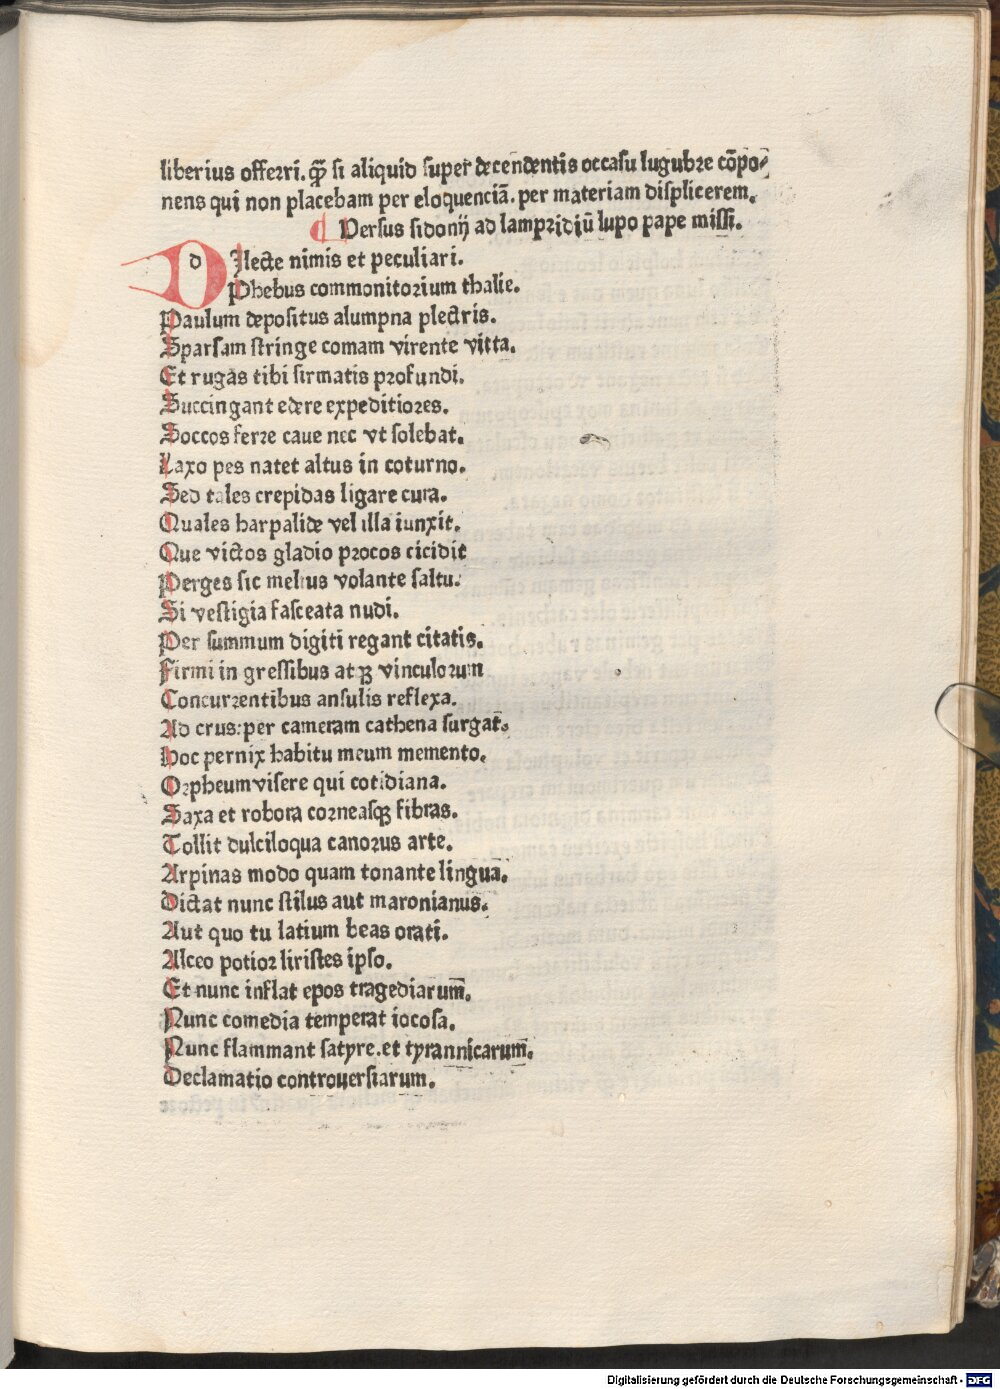 liberius offerri. qꝫ̃ si aliquid super decendentis occasu lugubre cõpo-
nens qui non placebam per eloquenciã. per materiam displicerem.
¶ Versus sidonij ad lampridiũ lupo pape missi.
DIlecte nimis et peculiari.
Phebus commonitorium thalie.
Paulum depositus alumpna plectris.
Sparsam stringe comam virente vitta.
Et rugas tibi sirmatis profundi.
Succingant edere expeditiores.
Soccos ferre caue nec vt solebat.
Laxo pes natet altus in coturno.
Sed tales crepidas ligare cura.
Quales harpalide vel illa iunxit.
Que victos gladio procos cicidit
Perges sic melius volante saltu.
Si vestigia fasceata nudi.
Per summum digiti regant citatis.
Firmi in gressibus atqꝫ vinculorum
Concurrentibus ansulis reflexa.
Ad crus: per cameram cathena surgat.
Hoc pernix habitu meum memento.
Orpheum visere qui cotidiana.
Saxa et robora corneasqꝫ fibras.
Tollit dulciloqua canorus arte.
Arpinas modo quam tonante lingua.
Dictat nunc stilus aut maronianus.
Aut quo tu latium beas orati.
Alceo potior liristes ipso.
Et nunc inflat epos tragediarum̄.
Nunc comedia temperat iocosa.
Nunc flammant satyre. et tyrannicarum̄.
Declamatio controuersiarum.
Digitalisierung gefördert durch die Deutsche Forschungsgemeinschaft - DFG